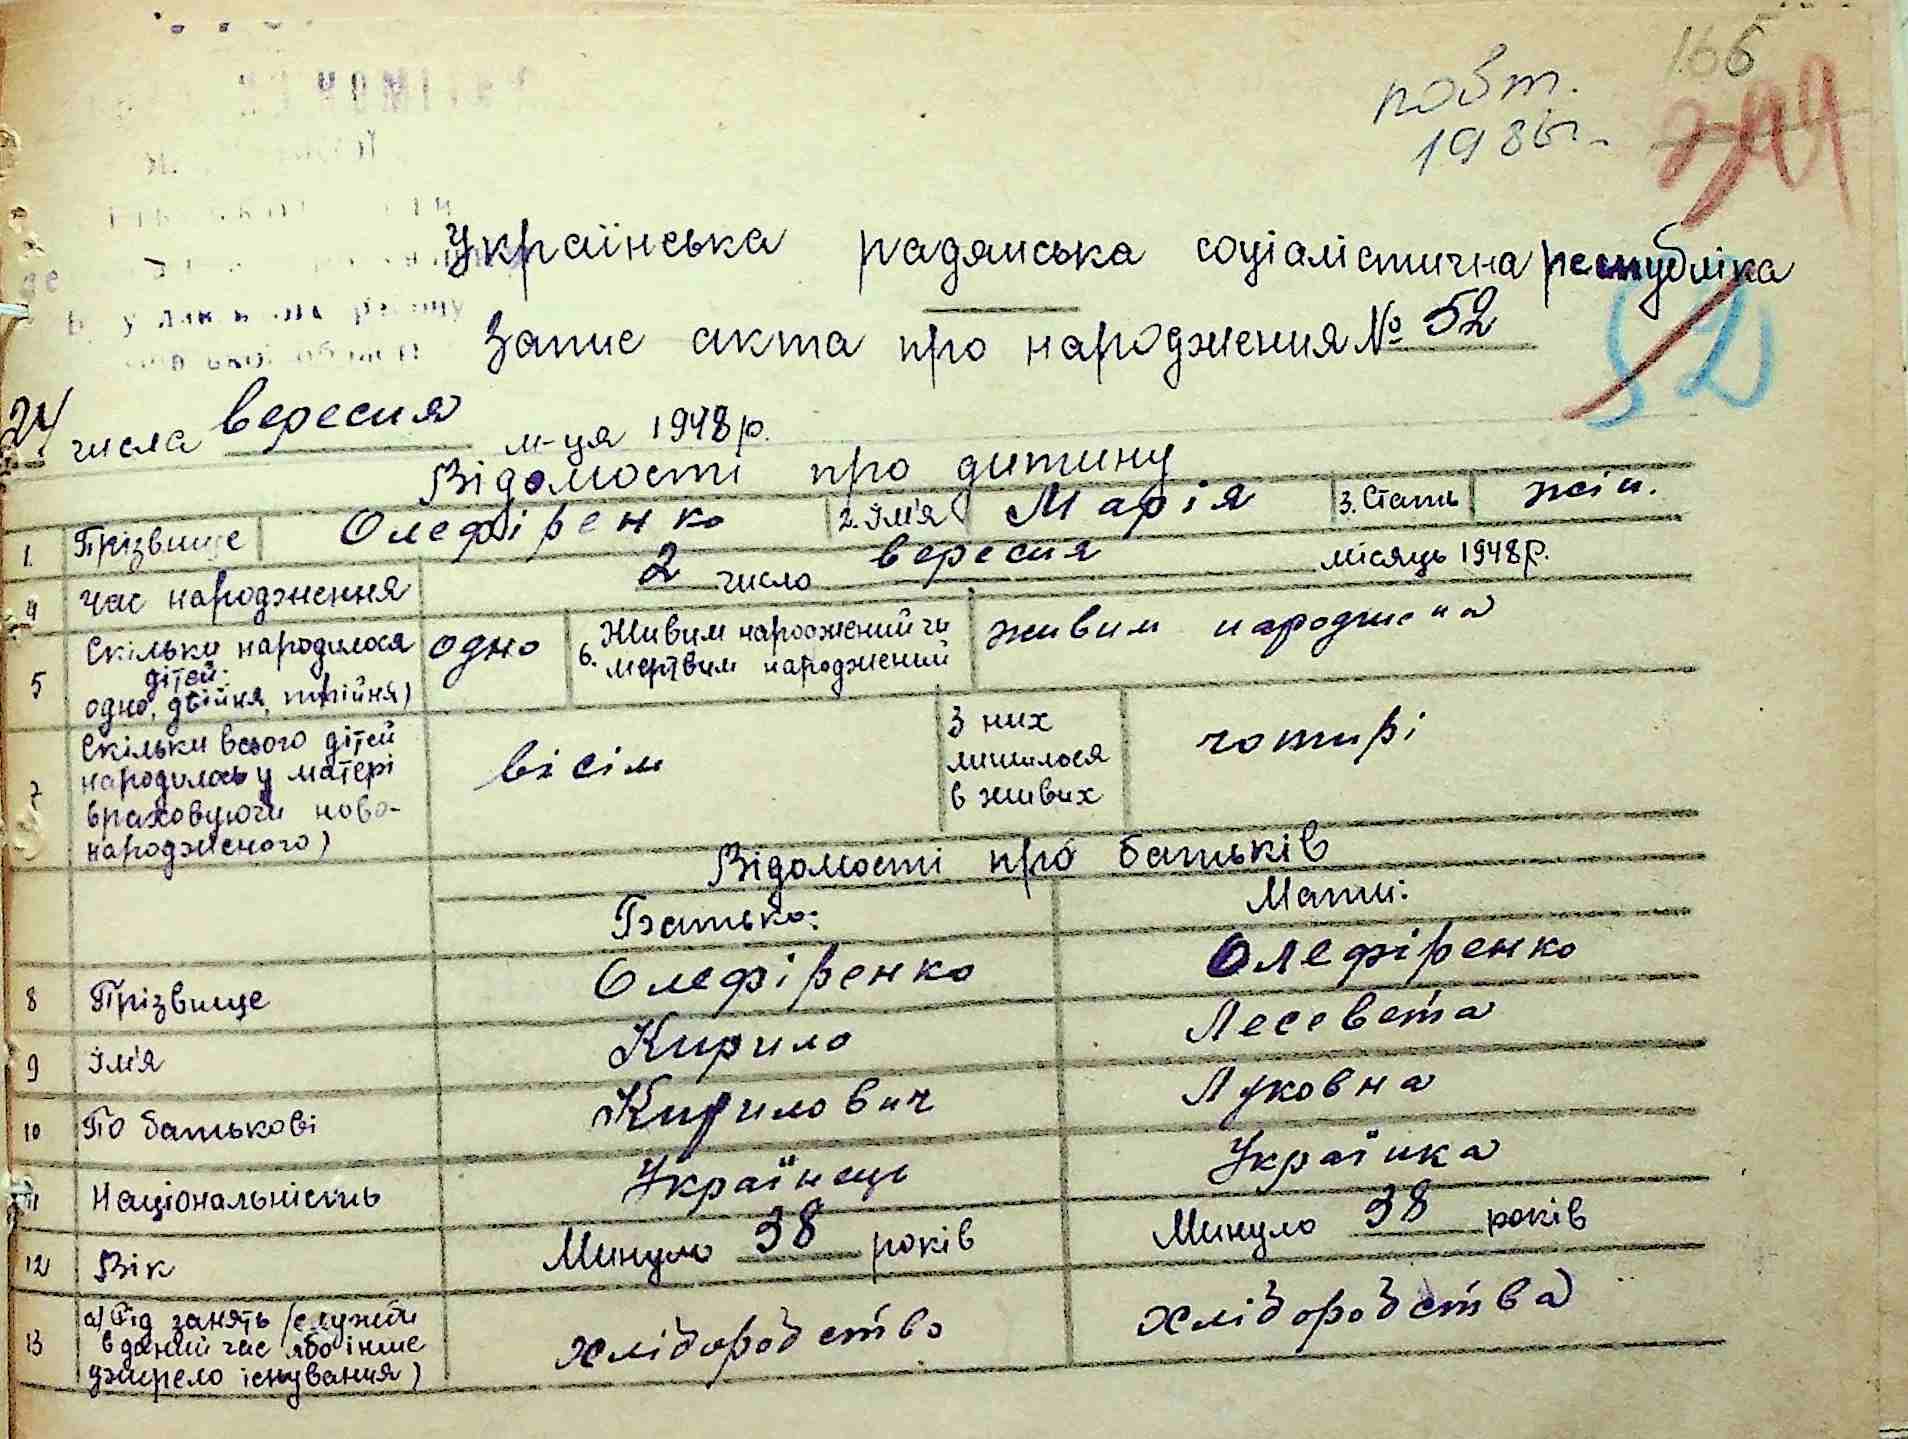 166
повт.
1986г.
244
Українська радянська соціалістична республіка
52
Запис акта про народження № 52
24 числа вересня м-ця 1948 р.
Відомості про дитину
1. Прізвище Олефіренко 2. Ім'я Марія 3. Стать жін.
4 Час народження 2 число вересня місяць 1948 р.
5 Скільки народилося дітей: одно, двійня, трійня) одно 6. Живим народжений чи мертвим народжений живим народжена
7 Скільки всього дітей народилось у матері враховуючи ново-народженого) вісім З них лишилося в живих чотирі
Відомості про батьків
Батько: Мати:
8 Прізвище Олефіренко Олефіренко
9 Ім'я Кирило Лесевета
10 По батькові Кирилович Луковна
11 Національність Українець Українка
12 Вік Минуло 38 років Минуло 38 років
13 а) Рід занять (служби в даний час або інше джерело існування) хліборобство хліборобства